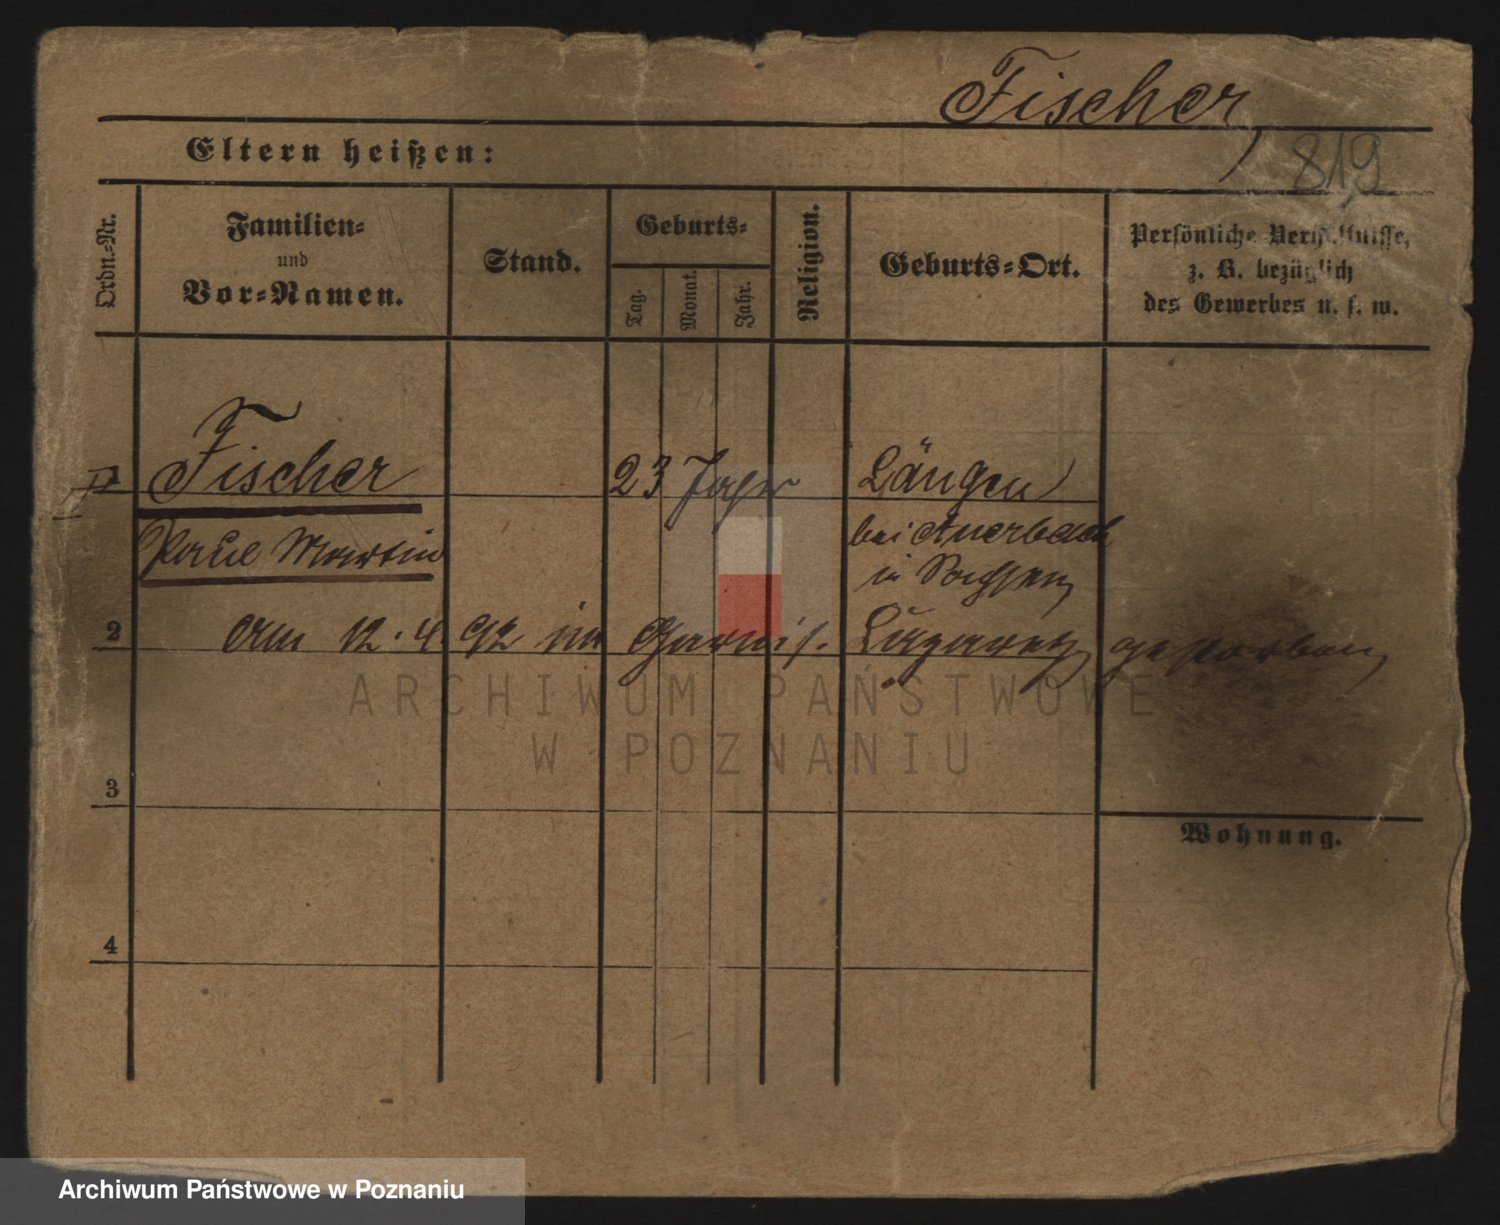 Fischer
819
Eltern heißen:
Ordn.-Nr.
Familien-
und
Vor-Namen.
Stand.
Geburts-
Tag.
Monat.
Jahr.
Religion.
Geburts-Ort.
Persönliche Verhältnisse,
z. B. bezüglich
des Gewerbes u. s. w.
1 Fischer 23 Jahr Längen
Paul Martin bei Auerbach
in Sachsen
2 am 12.4.92 im Garnis. Lazareth gestorben
ARCHIWUM PAŃSTWOWE
W POZNANIU
3
Wohnung.
4
Archiwum Państwowe w Poznaniu